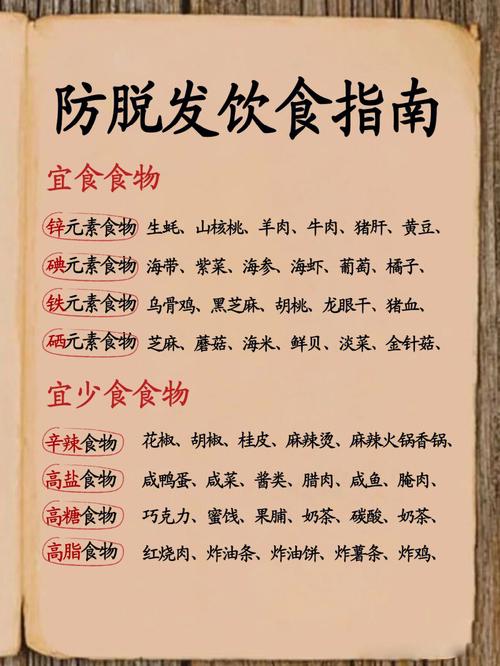 防脱发饮食指南
宜食食物
锌元素食物 生蚝、山核桃、羊肉、牛肉、猪肝、黄豆、
碘元素食物 海带、紫菜、海参、海虾、葡萄、橘子、
铁元素食物 乌骨鸡、黑芝麻、胡桃、龙眼干、猪血、
硒元素食物 芝麻、蘑菇、海米、鲜贝、淡菜、金针菇、
宜少食食物
辛辣食物 花椒、胡椒、桂皮、麻辣烫、麻辣火锅香锅、
高盐食物 咸鸭蛋、咸菜、酱类、腊肉、咸鱼、腌肉、
高糖食物 巧克力、蜜饯、果脯、奶茶、碳酸、奶茶、
高脂食物 红烧肉、炸油条、炸油饼、炸薯条、炸鸡、